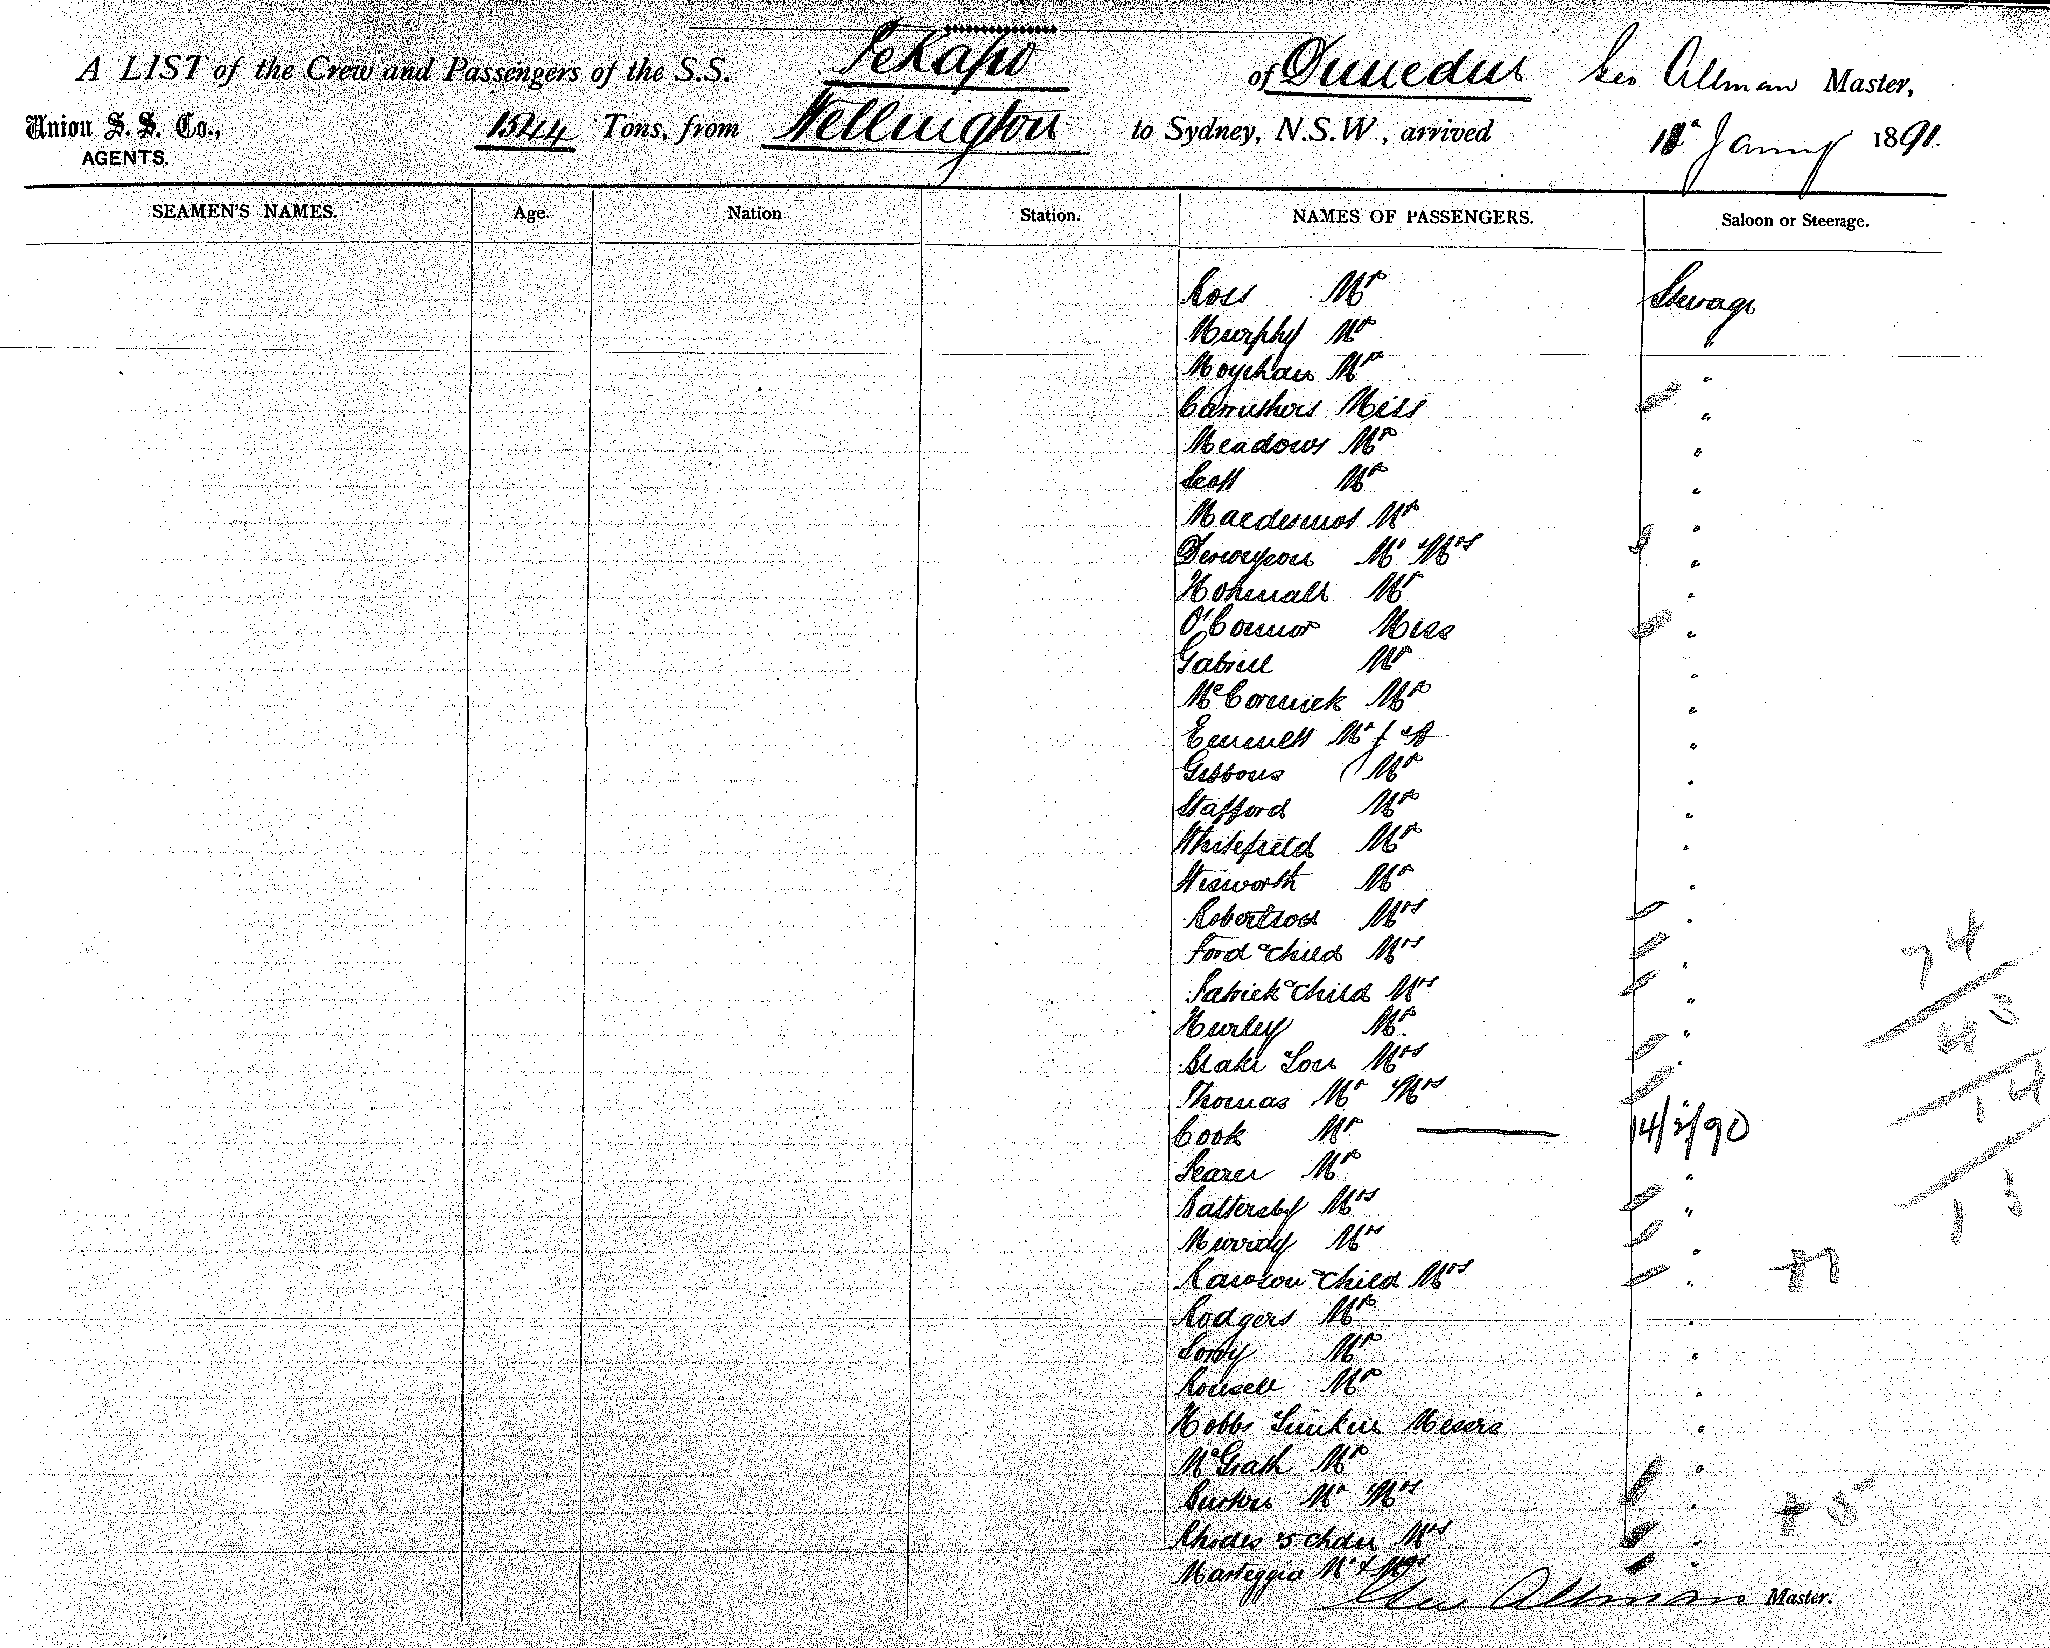 A LIST of the Crew and Passengers of the S.S. TeKapo of Dunedin Geo Allman Master,
Union S. S. Co., AGENTS. 1544 Tons, from Wellington to Sydney, N.S.W, arrived Jany 1890.
SEAMEN'S NAMES. Age. Nation Station. NAMES OF PASSENGERS. Saloon or Steerage.
Ross Mr Steerage
Murphy Mr "
Moynhan Mr "
Carruthers Miss "
Meadows Mr "
Scott Mr "
Macdermot Mr "
Mr & Mrs "
Mr "
O'Connor Miss "
Gabriel Mr "
McCormick Mr "
Emmett Mr "
Gibbons Mr "
Stafford Mr "
Whitefield Mr "
Wisworth Mr "
Robertson Mrs "
Ford & child Mrs "
Patrick & child Mrs "
Hurley Mr "
Blake & Son Mrs "
Thomas Mr & Mrs
Cook Mr 14/2/90
Mr "
Battersby Mrs "
Mrs "
Rawson & child Mrs "
Rodgers Mr "
Mr "
Rousell Mr "
Hobbs Messrs "
McGrath Mr "
Burton Mr & Mrs "
Rhodes & 5 chdn Mrs "
Marteggia Mr & Mrs "
Geo Allman Master.
74
43
14
13
+ 5